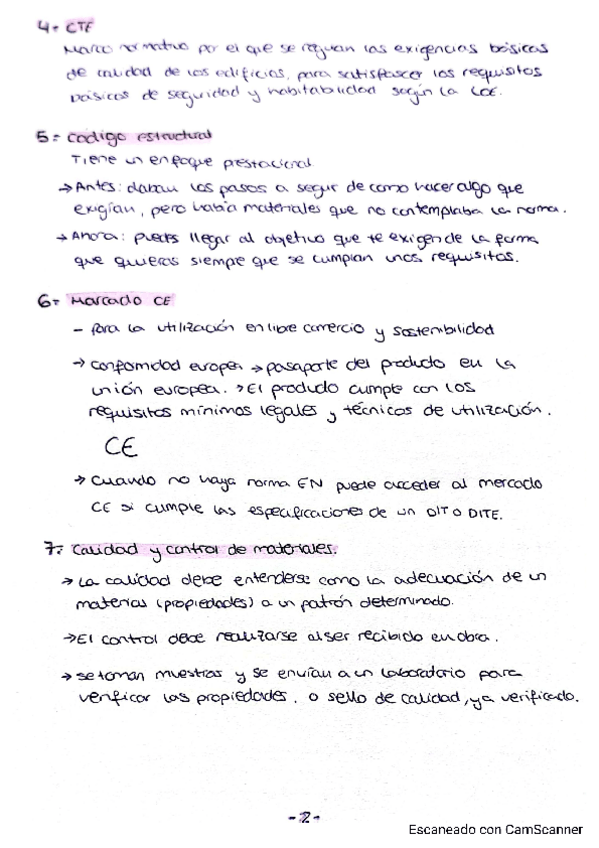 4= CTE
Marco normativo por el que se regulan las exigencias básicas
de calidad de los edificios, para satisfascer los requisitos
básicos de seguridad y habitabilidad según la LOE.
5= código estructural
Tiene un enfoque prestacional
→ Antes: daban los pasos a seguir de como hacer algo que
exigían, pero había materiales que no contemplaba la norma.
→ Ahora: puedes llegar al objetivo que te exigen de la forma
que quieras siempre que se cumplan unos requisitos.
6= Marcado CE
- Para la utilización en libre comercio y sostenibilidad
→ conformidad europea → pasaporte del producto en la
unión europea. → El producto cumple con los
requisitos mínimos legales y técnicos de utilización.
CE
→ Cuando no haya norma EN puede acceder al mercado
CE si cumple las especificaciones de un DIT O DITE.
7= Calidad y control de materiales.
→ La calidad debe entenderse como la adecuación de un
material (propiedades) a un patrón determinado.
→ El control debe realizarse al ser recibido en obra.
→ se toman muestras y se envían a un laboratorio para
verificar las propiedades. o sello de calidad, ya verificado.
-2-
Escaneado con CamScanner